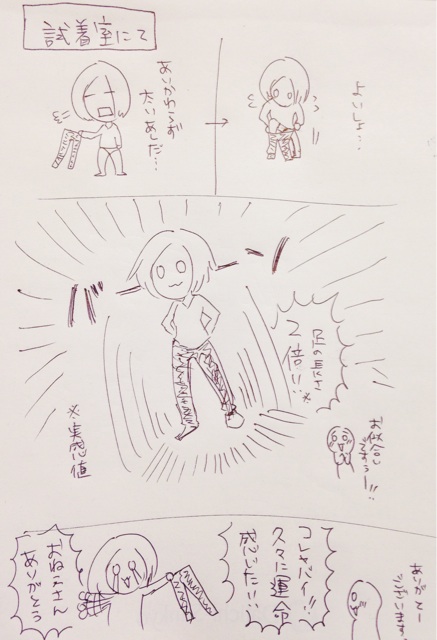 試着室にて
あいかわらず
太いあしだ…
よいしょ…
バーン
足の長さ
2倍!!※
※実感値
お似合い
ですぅー!!
コレヤバイ!!
久々に運命
感じたい!!
おねぇさん
ありがとう
ありがとー
ございます!